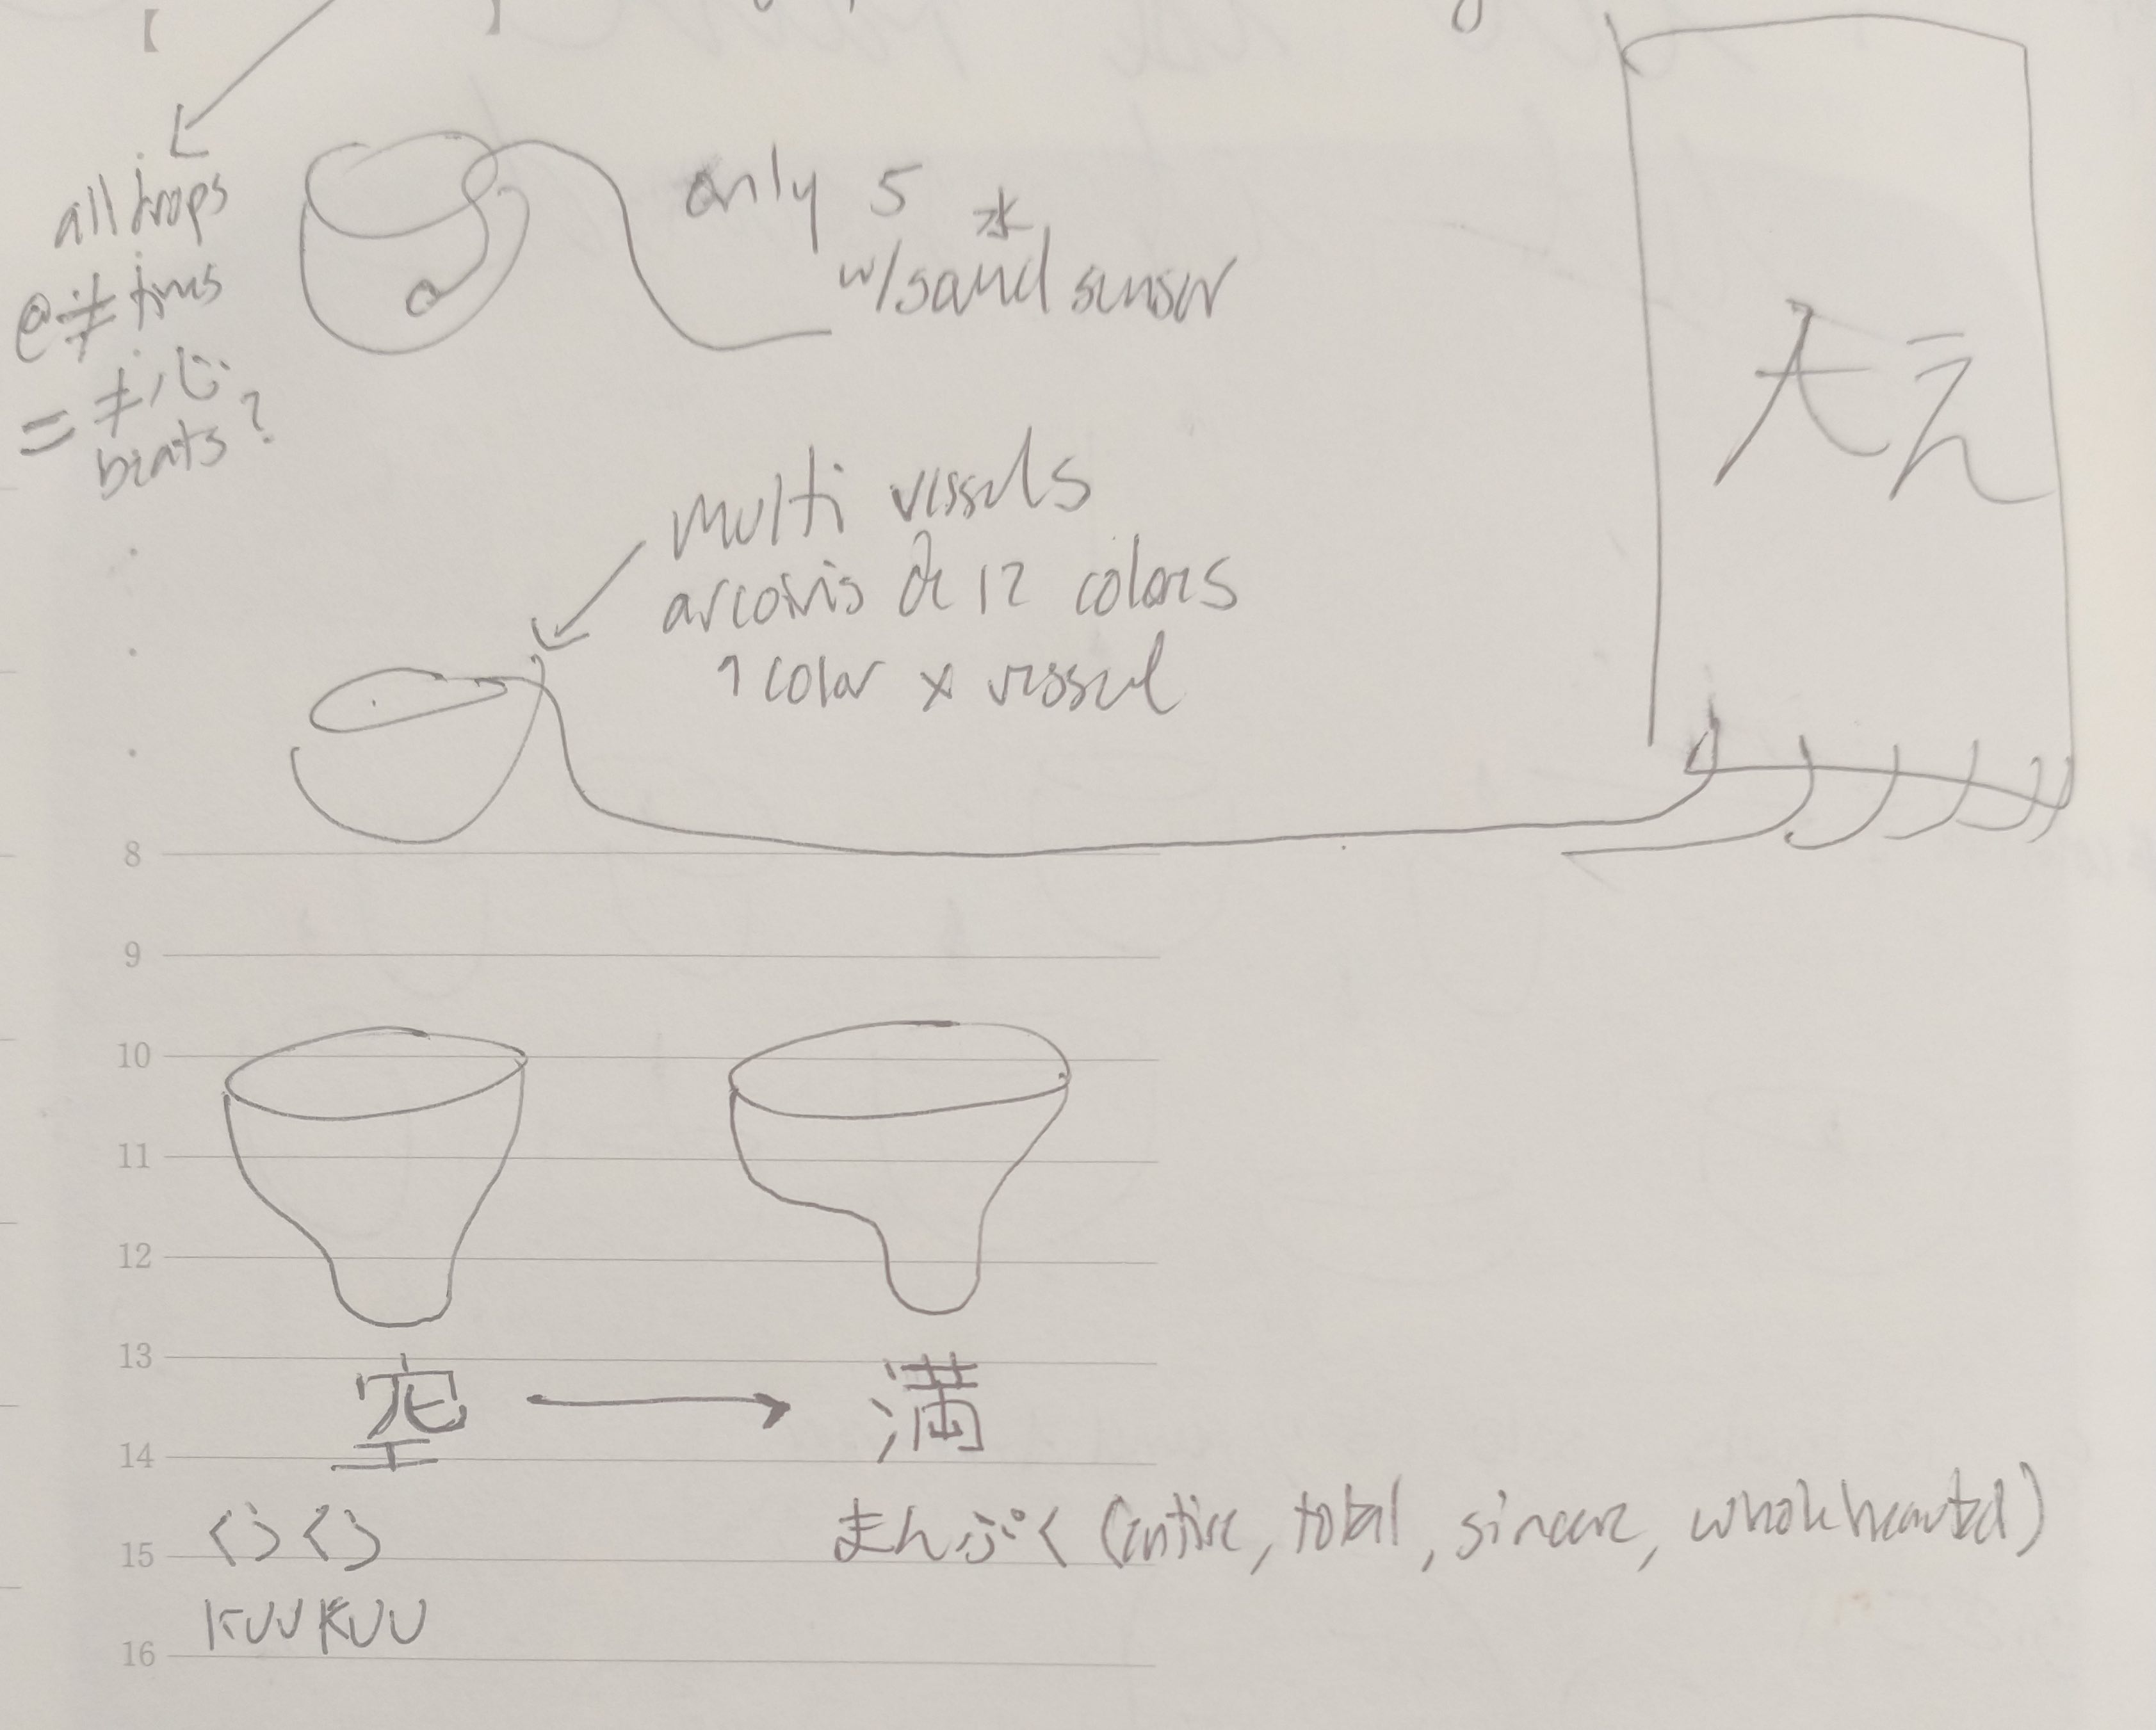 【 】
all drops
@ ≠ times
= ≠ 心
beats?
only 5 水
w/sand sensor
multi vessels
arcoiris de 12 colors
1 color x vessel
8
9
10
11
12
13
空 → 満
14
くうくう
まんぷく (entire, total, sincere, wholehearted)
15
KUUKUU
16